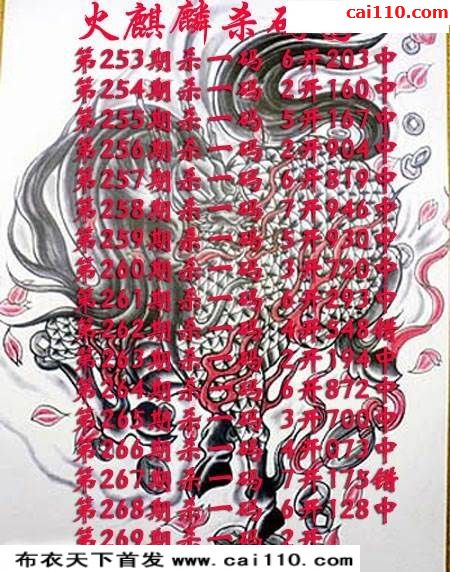 cai110.com
火麒麟杀码
第253期杀一码 6开203中
第254期杀一码 2开160中
第255期杀一码 5开167中
第256期杀一码 2开904中
第257期杀一码 6开819中
第258期杀一码 7开946中
第259期杀一码 5开930中
第260期杀一码 3开720中
第261期杀一码 6开293中
第262期杀一码 4开548错
第263期杀一码 2开194中
第264期杀一码 6开872中
第265期杀一码 3开700中
第266期杀一码 4开073中
第267期杀一码 7开175错
第268期杀一码 6开128中
第269期杀一码 2开
布衣天下首发 www.cai110.com